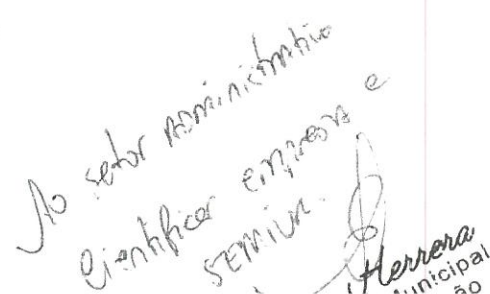 Ao setor Administrativo
Cientificar empresa e
SEMIUR.
Herrera
Municipal
ão